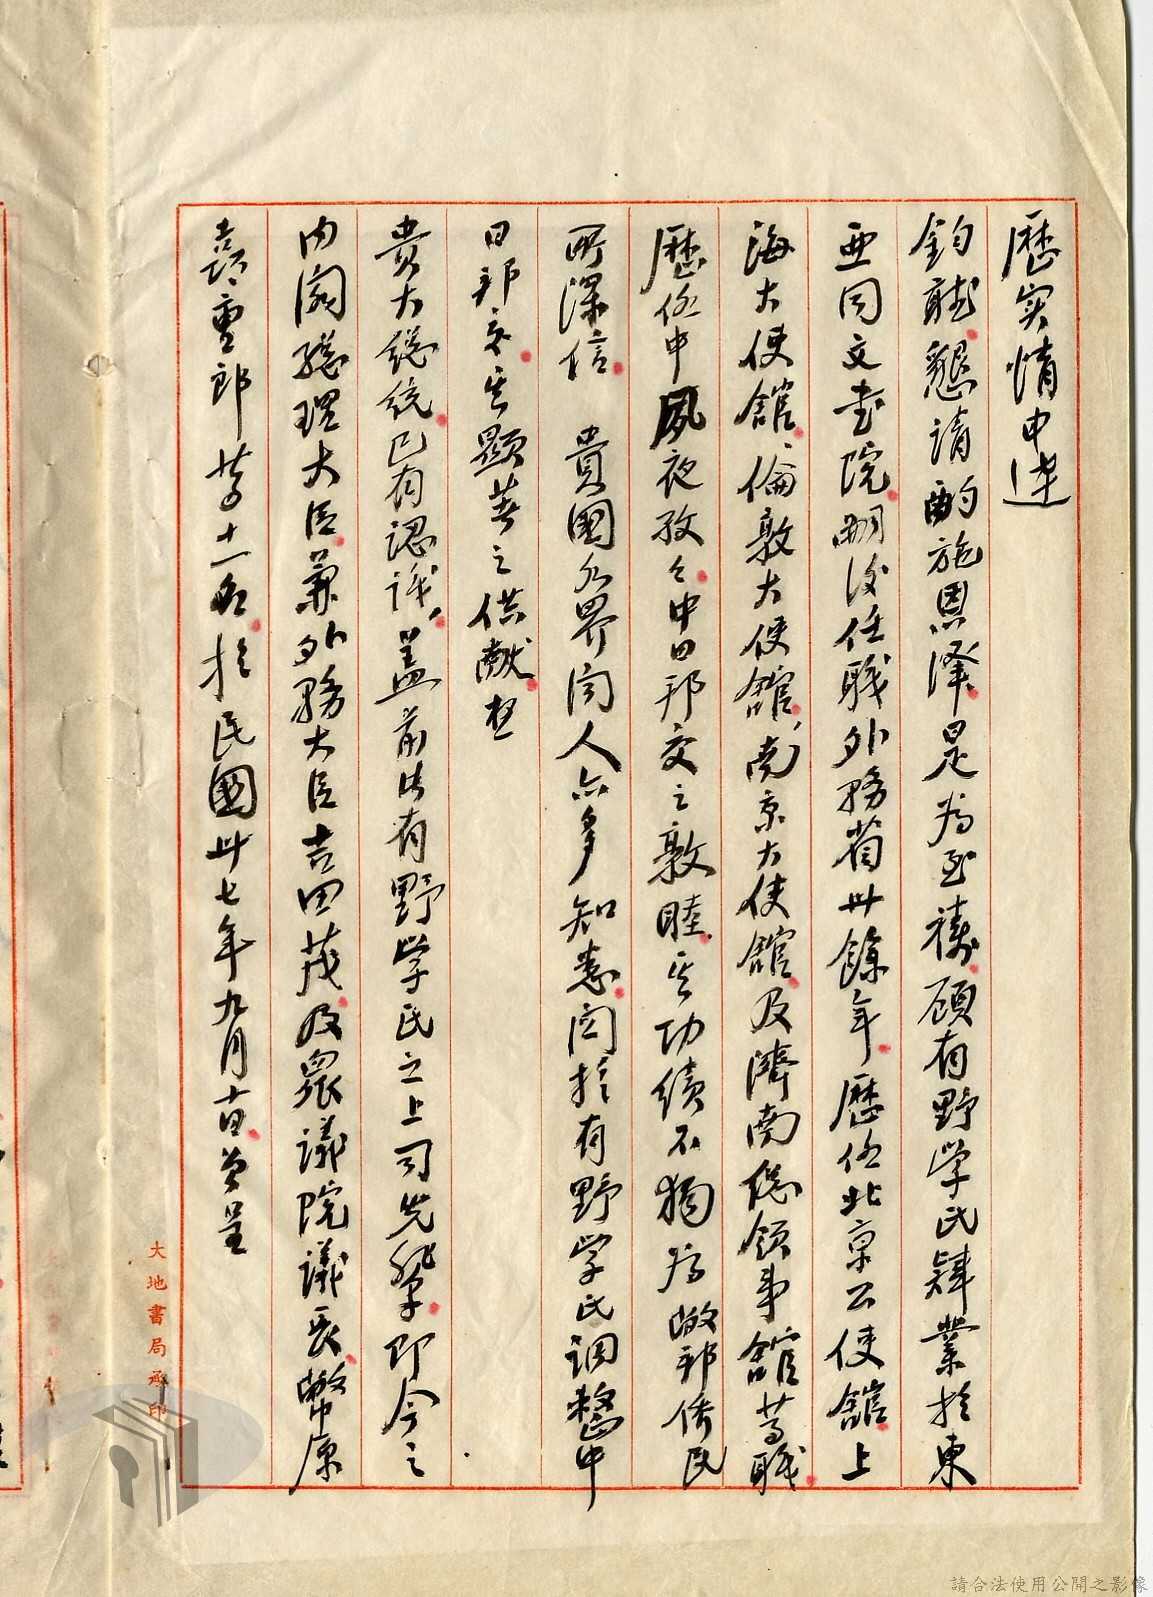 歷实情申述
鈞聽。懇請酌施恩澤。是為至禱。顧有野学氏肄業於東
亜同文書院。嗣後任職外務省卅餘年。歷任北京公使館。上
海大使館、倫敦大使館、南京大使館。及濟南總領事館等職。
歷任中夙夜孜々。中日邦交之敦睦。其功績不獨為敝邦僑民
所深信。貴國各界同人亦多知悉。関於有野学氏調整中
日邦交。其顯著之供献。在
貴大總統。已有認识，蓋前此有野学氏之上司先輩。即今之
内閣總理大臣。兼外務大臣吉田茂。及衆議院議長。幣原
喜重郎 等十一名。於民國卅七年九月 曾呈
大地書局承印
請合法使用公開之影像